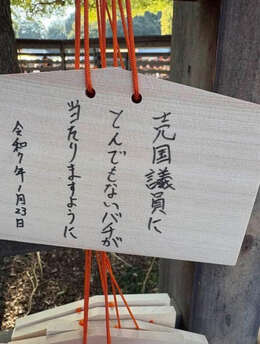 売国議員に
とんでもないバチが
当たりますように
令和7年1月23日